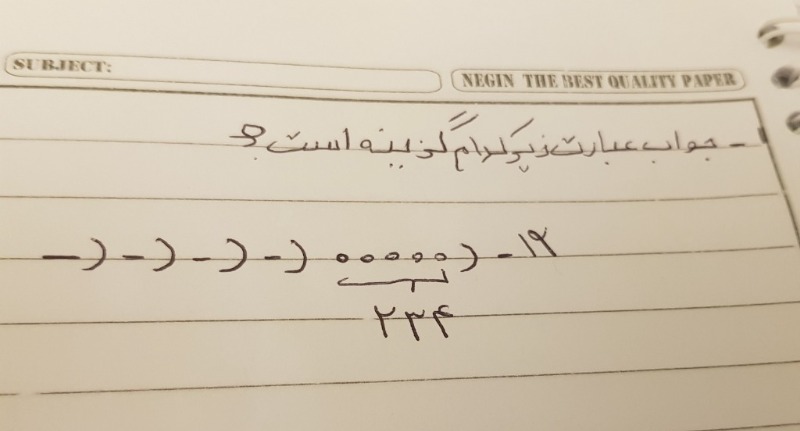 SUBJECT:
NEGIN THE BEST QUALITY PAPER
- جواب عبارت زیر کدام گزینه است؟
-(-(-(-(.....(-۱۲
۲۳۴